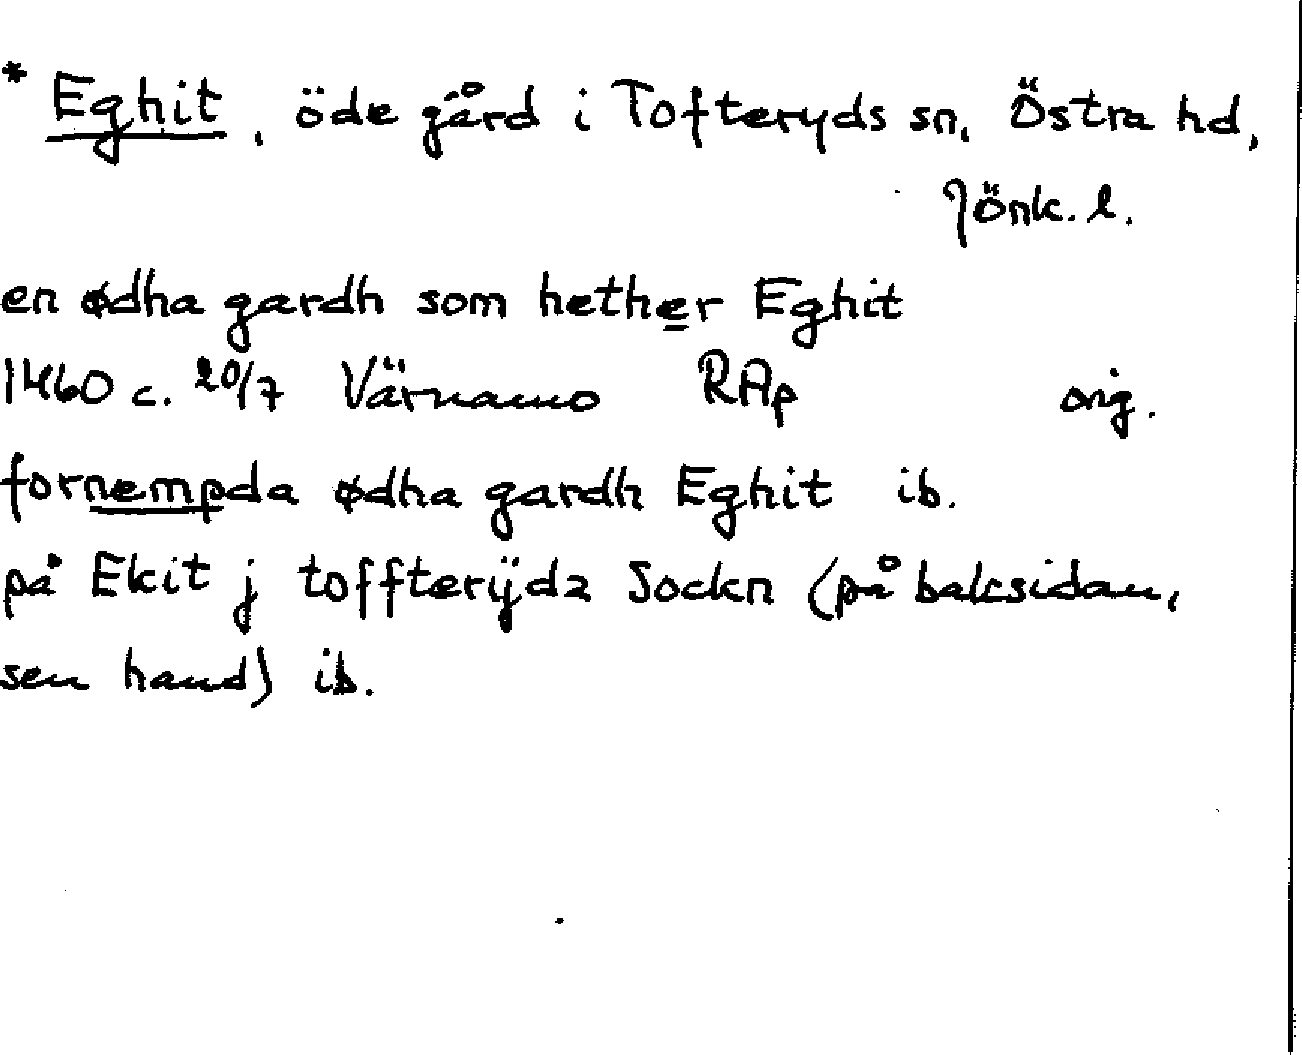 * Eghit, öde gård i Tofteryds sn, Östra hd,
Jönk. l.
en ødha gardh som hether Eghit
1460 c. 20/7 Värnamo RAp orig.
fornempda ødha gardh Eghit ib.
på Ekit j toffterÿdz Sockn (på baksidan,
sen hand) ib.